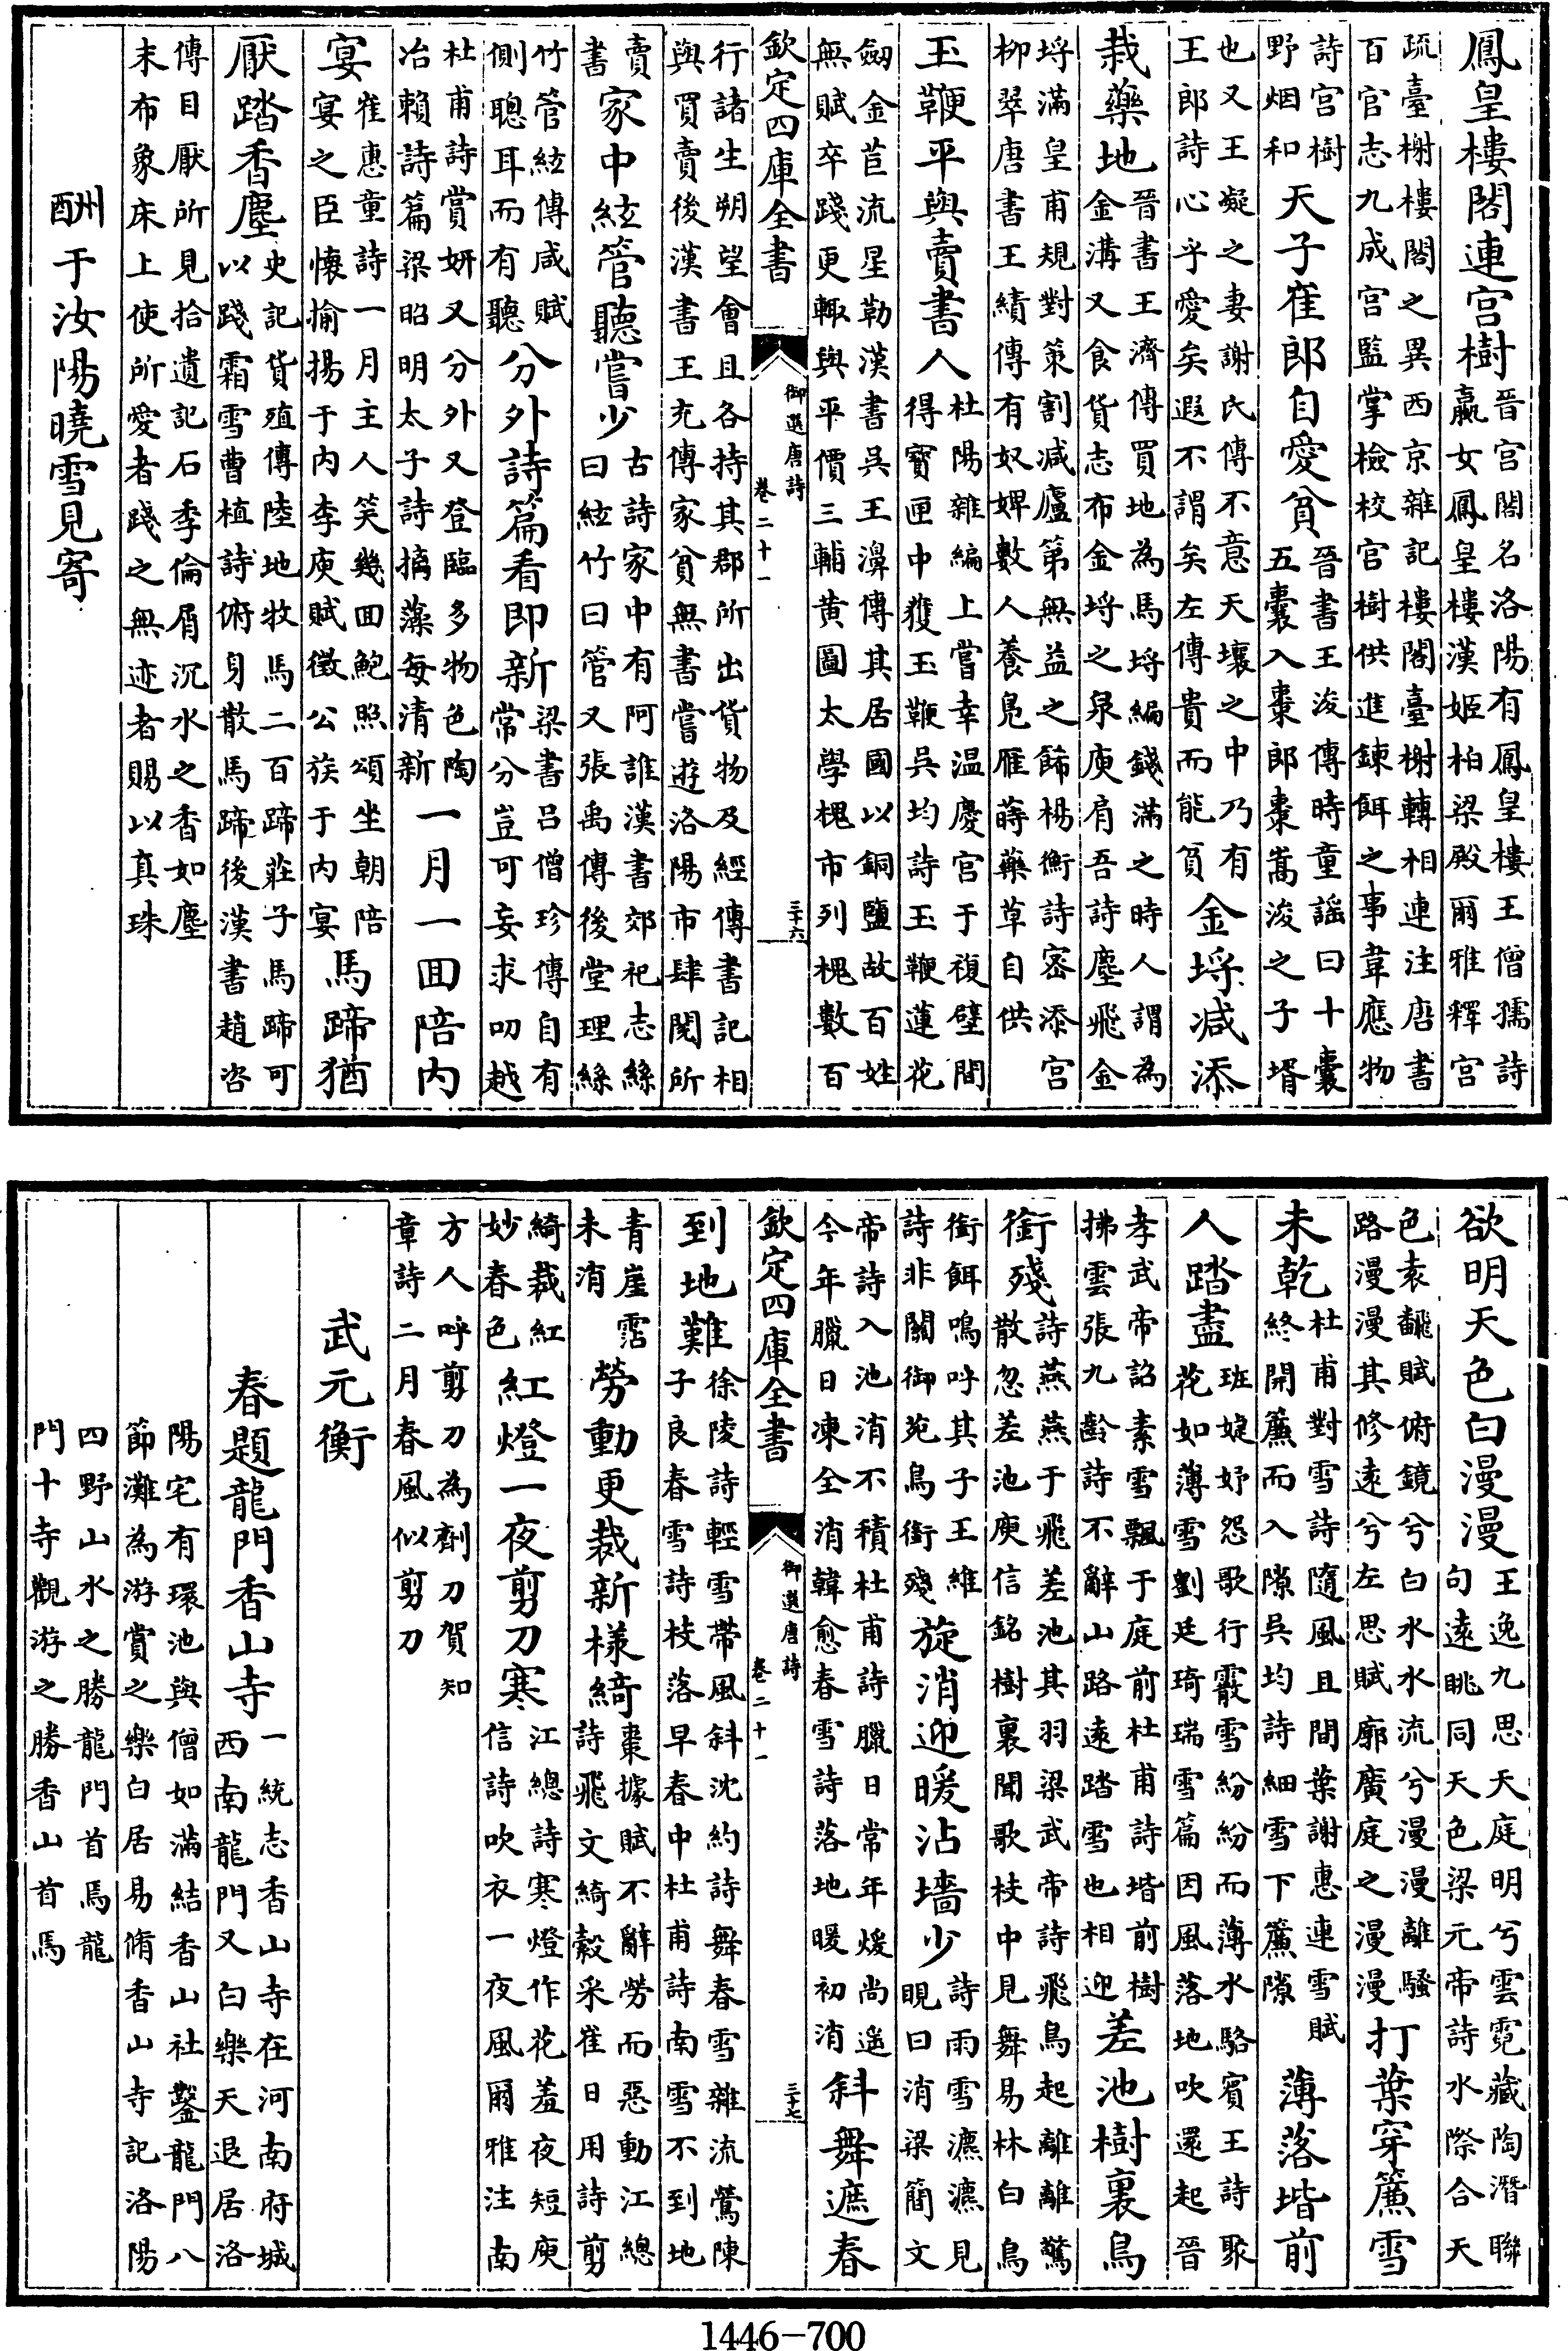 鳳皇樓閣連宫樹晉宫閣名洛陽有鳳皇樓王僧孺詩嬴女鳳皇樓漢姬柏梁殿爾雅釋宫
疏臺榭樓閣之異西京雜記樓閣臺榭轉相連注唐書百官志九成宫監掌檢校宫樹供進鍊餌之事韋應物
詩宫樹野烟和天子崔郎自愛貧晉書王浚傳時童謠曰十囊五囊入棗郎棗嵩浚之子壻
也又王凝之妻謝氏傳不意天壤之中乃有王郎詩心乎愛矣遐不謂矣左傳貴而能貧金埒减添
栽藥地晉書王濟傳買地為馬埒編錢滿之時人謂為金溝又食貨志布金埒之泉庾肩吾詩塵飛金
埒滿皇甫規對策割减廬第無益之飾楊衡詩密添宫柳翠唐書王績傳有奴婢數人養鳬雁蒔藥草自供
玉鞭平與賣書人杜陽雜編上嘗幸温慶宫于複壁間得寳匣中獲玉鞭吳均詩玉鞭蓮花
劔金苣流星勒漢書吳王濞傳其居國以銅鹽故百姓無賦卒踐更輙與平價三輔黄圖太學槐市列槐數百
欽定四庫全書
御選唐詩
卷二十一
三十六
行諸生朔望會且各持其郡所出貨物及經傳書記相與買賣後漢書王充傳家貧無書嘗遊洛陽市肆閲所
賣書家中絃管聽嘗少古詩家中有阿誰漢書郊祀志絲曰絃竹曰管又張禹傳後堂理絲
竹管絃傳咸賦側聰耳而有聽分外詩篇看即新梁書吕僧珍傳自有常分豈可妄求叨越
杜甫詩賞妍又分外又登臨多物色陶冶賴詩篇梁昭明太子詩摛藻每清新一月一囬陪内
宴崔惠童詩一月主人笑幾囬鮑照頌坐朝陪宴之臣懷揄揚于内李庾賦徵公族于内宴馬蹄猶
厭踏香塵史記貨殖傳陸地牧馬二百蹄莊子馬蹄可以踐霜雪曹植詩俯身散馬蹄後漢書趙咨
傳目厭所見拾遺記石季倫屑沉水之香如塵末布象床上使所愛者踐之無迹者賜以真珠
酬于汝陽曉雪見寄
欲明天色白漫漫王逸九思天庭明兮雲霓藏陶潛聯句遠眺同天色梁元帝詩水際合天
色袁翻賦俯鏡兮白水水流兮漫漫離騷路漫漫其修遠兮左思賦廓廣庭之漫漫打葉穿簾雪
未乾杜甫對雪詩隨風且間葉謝惠連雪賦終開簾而入隙吳均詩細雪下簾隙薄落堦前
人踏盡班婕妤怨歌行霰雪紛紛而薄水駱賓王詩聚花如薄雪劉廷琦瑞雪篇因風落地吹還起晉
孝武帝詔素雪飄于庭前杜甫詩堦前樹拂雲張九齡詩不辭山路遠踏雪也相迎差池樹裏鳥
銜殘詩燕燕于飛差池其羽梁武帝詩飛鳥起離離驚散忽差池庾信銘樹裏聞歌枝中見舞易林白鳥
銜餌鳴呼其子王維詩非關御苑鳥銜殘旋消迎暖沾墻少詩雨雪瀌瀌見晛曰消梁簡文
帝詩入池消不積杜甫詩臘日常年煖尚遥今年臘日凍全消韓愈春雪詩落地暖初消斜舞遮春
欽定四庫全書
御選唐詩
卷二十一
三十七
到地難徐陵詩輕雪帶風斜沈約詩舞春雪雜流鶯陳子良春雪詩枝落早春中杜甫詩南雪不到地
青崖霑未消勞動更裁新様綺棗據賦不辭勞而惡動江總詩飛文綺縠采崔日用詩剪
綺裁紅妙春色紅燈一夜剪刀寒江總詩寒燈作花羞夜短庾信詩吹衣一夜風爾雅注南
方人呼剪刀為劑刀賀知章詩二月春風似剪刀
武元衡
春題龍門香山寺一統志香山寺在河南府城西南龍門又白樂天退居洛
陽宅有環池與僧如滿結香山社鑿龍門八節灘為游賞之樂白居易脩香山寺記洛陽
四野山水之勝龍門首焉龍門十寺觀游之勝香山首焉
1446-700